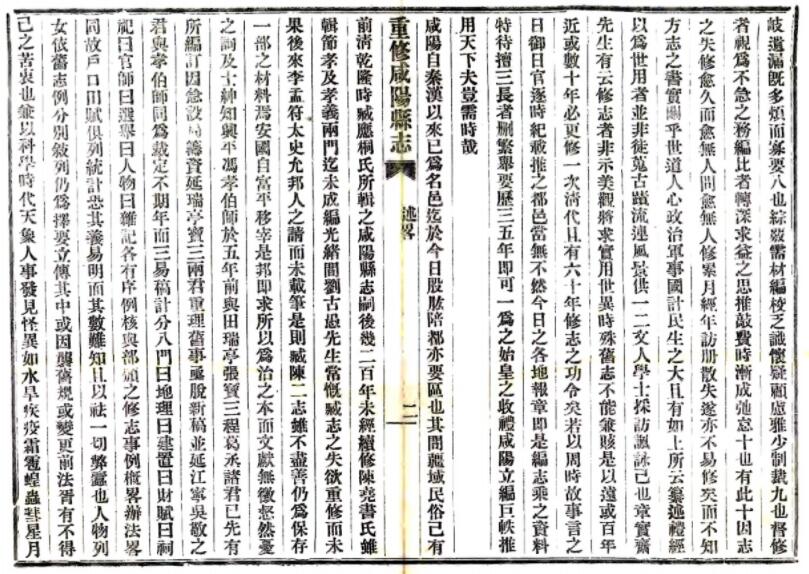 歧遺漏旣多煩而寡要八也綜覈需材編校乏識懷疑顧慮雅少制裁九也督修
者視爲不急之務編比者轉深求益之思推敲費時漸成弛怠十也有此十因志
之失修愈久而愈無人問愈無人修累月經年訪册散失遂亦不易修矣而不知
方志之書實關乎世道人心政治軍事國計民生之大且有如上所云纂述禮經
以爲世用者並非徒蒐古蹟流連風景供一二文人學士採訪諷詠已也章實齋
先生有云修志者非示美觀將求實用世異時殊舊志不能兼賅是以遠或百年
近或數十年必更修一次淸代且有六十年修志之功令矣若以周時故事言之
日御日官逐時紀載推之都邑當無不然今日之各地報章卽是編志乘之資料
特待擅三長者刪繁舉要歷三五年卽可一爲之始皇之收禮咸陽立編巨帙推
用天下夫豈需時哉
咸陽自秦漢以來已爲名邑迄於今日股肱陪都亦要區也其間疆域民俗己有
重修咸陽縣志
述略
二
前淸乾隆時臧應桐氏所輯之咸陽縣志嗣後幾二百年未經續修陳堯書氏雖
輯節孝及孝義兩門迄未成編光緖間劉古愚先生當慨臧志之失欲重修而未
果後來李孟符太史允邦人之請而未載筆是則臧陳二志雖不盡善仍爲保存
一部之材料焉安國自富平移宰是邦卽求所以爲治之本而文獻無徵惄然憂
之詢及士紳知興平馮孝伯師於五年前與田瑞亭張寶三程葛丞諸君已先有
所編訂因急設局籌資延瑞亭寶三兩君重理舊事亟脫新稿並延江寧吳敬之
君與孝伯師同爲裁定不期年而三易稿計分八門曰地理曰建置曰財賦曰祠
祀曰官師曰選舉曰人物曰雜記各有序例核與部頒之修志事例槪畧辦法畧
同故戶口田賦俱列統計恐其義易明而其數難知且以祛一切弊竇也人物列
女依舊志例分別敍列仍爲擇要立傳其中或因襲舊規或變更前法胥有不得
己之苦衷也兼以科學時代天象人事發見怪異如水旱疾疫霜雹蝗蟲彗星月